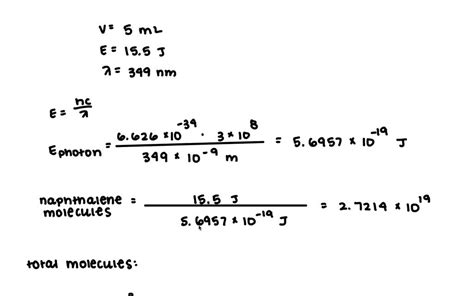 V = 5 mL
E = 15.5 J
λ = 349 nm
E = hc/λ
Ephoton = 6.626 × 10⁻³⁴ · 3 × 10⁸ / 349 × 10⁻⁹ m = 5.6957 × 10⁻¹⁹ J
naphthalene molecules = 15.5 J / 5.6957 × 10⁻¹⁹ J = 2.7214 × 10¹⁹
total molecules: